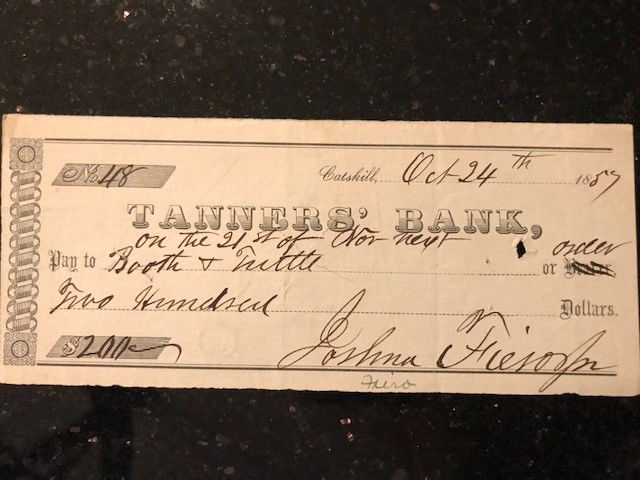 No. 48
Catskill, Oct 24th 1857
TANNERS' BANK,
on the 21st of Nov next
Pay to Booth & Tuttle or order Bearer
Two Hundred Dollars.
$200
Joshua Fiero Jr
Fiero